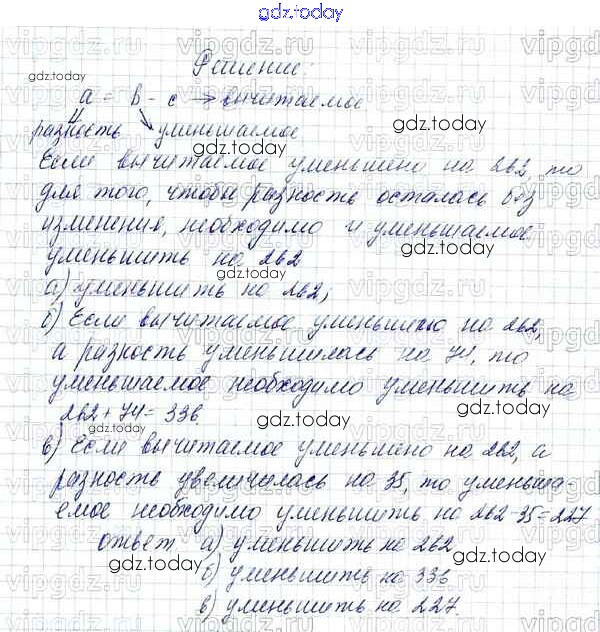 gdz.today
Решение:
a = b - c → вычитаемое
разность уменьшаемое
Если вычитаемое уменьшено на 262, то
для того, чтобы разность осталась без
изменения, необходимо и уменьшаемое
уменьшить на 262
а) уменьшить на 262;
б) Если вычитаемое уменьшено на 262,
а разность уменьшилась на 74, то
уменьшаемое необходимо уменьшить на
262 + 74 = 336.
в) Если вычитаемое уменьшено на 262, а
разность увеличилась на 35, то уменьша-
емое необходимо уменьшить на 262-35=227
ответ а) уменьшить на 262
б) уменьшить на 336
в) уменьшить на 227.